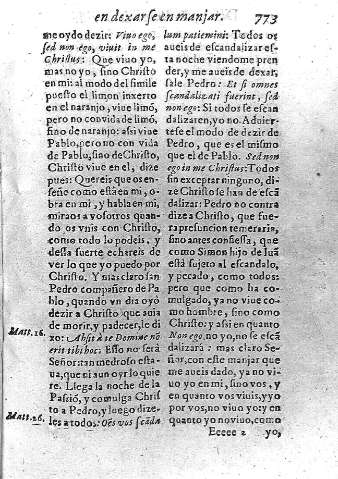 en dexarse en manjar. 773
me oydo dezir: Viuo ego,
sed non ego, viuit in me
Christus: Que viuo yo,
mas no yo, sino Christo
en mi: al modo del simile
puesto el limon inxerto
en el naranjo, viue limó,
pero no con vida de limó,
sino de naranjo: assi viue
Pablo, pero no con vida
de Pablo, sino de Christo,
Christo viue en el, dize
pues: Quereis que os en-
señe como està en mi, o-
bra en mi, y habla en mi,
miraos a vosotros quan-
do os vnis con Christo,
como todo lo podeis, y
desta suerte echareis de
ver lo que yo puedo por
Christo. Y mas claro san
Pedro compañero de Pa
blo, quando vn dia oyó
dezir a Christo que auia
de morir, y padecer, le di
Matt. 16. xo: Absit à te Domine nõ
erit tibi hoc: Esso no serà
Señor: tan medroso esta-
ua, que ni aun oyrlo quie
re. Llega la noche de la
Passiõ, y comulga Chris
to a Pedro, y luego dize-
Matt. 26. les a todos: Oẽs vos scãda
lum patiemini: Todos os
aueis de escandalizar es-
ta noche viendome pren
der, y me aueis de dexar,
sale Pedro: Et si omnes
scandalizati fuerint, sed
non ego: Si todos se escan
dalizaren, yo no. Aduier-
tese el modo de dezir de
Pedro, que es el mismo
que el de Pablo. Sed non
ego in me Christus: Todos
sin exceptar ninguno, di-
ze Christo se han de escã
dalizar: Pedro no contra
dize a Christo, que fue-
ra presuncion temeraria,
sino antes confiessa, que
como Simon hijo de Iuã
està sujeto al escandalo,
y pecado, como todos:
pero que como ha co-
mulgado, ya no viue co-
mo hombre, sino como
Christo: y assi en quanto
Non ego no yo, no se escã
dalizará: mas claro Se-
ñor, con este manjar que
me aueis dado, ya no vi-
uo yo en mi, sino vos, y
en quanto vos viuis, y yo
por vos, no viuo yo: y en
quanto yo no viuo, como
Eeeee 2 yo,